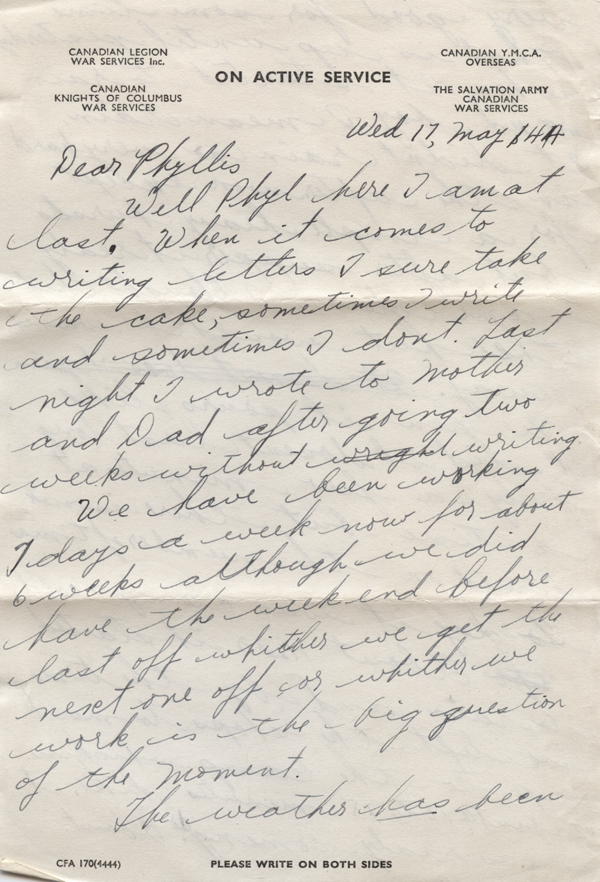 CANADIAN LEGION
WAR SERVICES Inc.
CANADIAN
KNIGHTS OF COLUMBUS
WAR SERVICES
ON ACTIVE SERVICE
CANADIAN Y.M.C.A.
OVERSEAS
THE SALVATION ARMY
CANADIAN
WAR SERVICES
Wed 17, May 44
Dear Phyllis
Well Phyl here I am at
last. When it comes to
writing letters I sure take
the cake, sometimes I write
and sometimes I dont. Last
night I wrote to Mother
and Dad after going two
weeks without writing
We have been working
7 days a week now for about
6 weeks although we did
have the weekend before
last off whither we get the
next one off or whither we
work is the big question
of the moment.
The weather has been
CFA 170(4444)
PLEASE WRITE ON BOTH SIDES